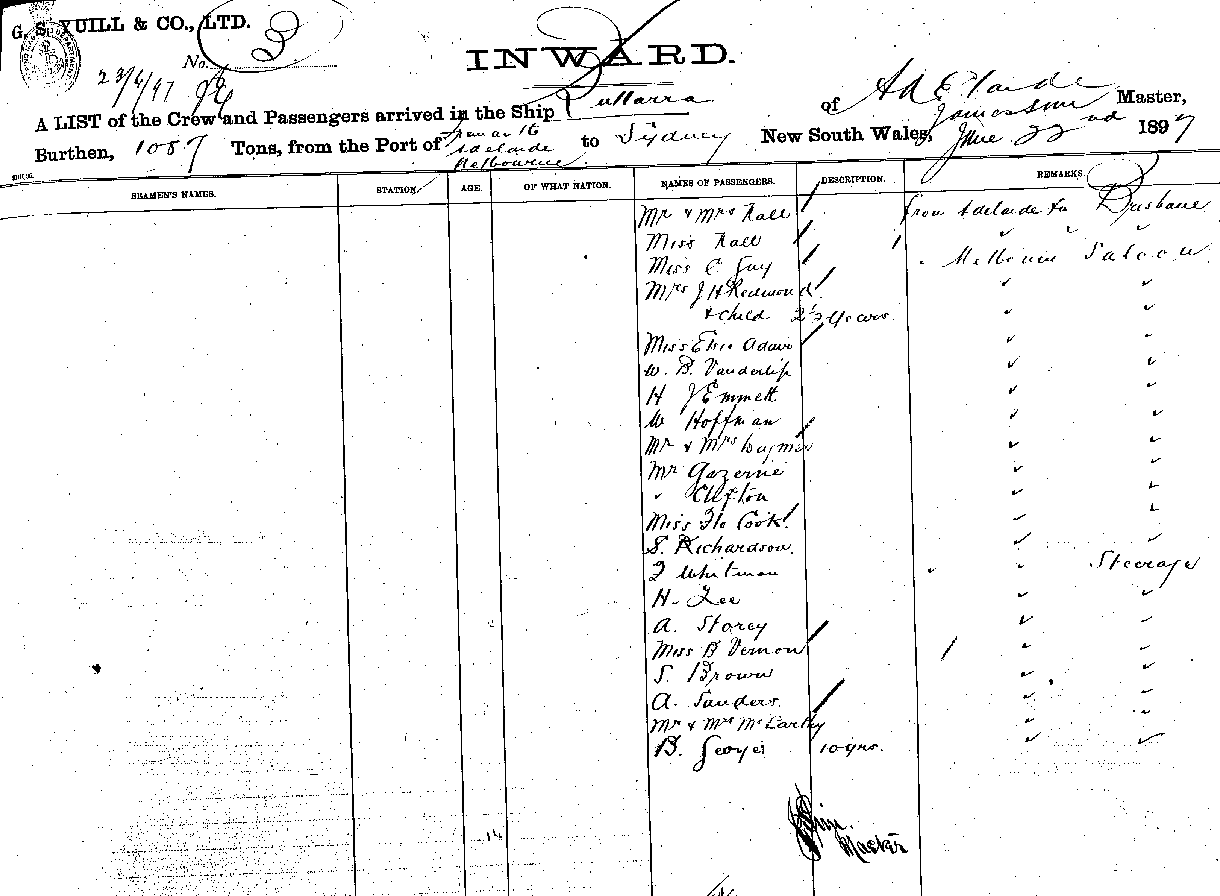 G. S. YUILL & CO., LTD.
No. 3
INWARD.
23/6/97
A LIST of the Crew and Passengers arrived in the Ship Bullarra of Adelaide Master,
Burthen, 1087 Tons, from the Port of Adelaide Melbourne to Sydney New South Wales, June 22nd 1897
SEAMEN'S NAMES. STATION AGE. OF WHAT NATION. NAMES OF PASSENGERS. DESCRIPTION. REMARKS.
Mr & Mrs Hall from Adelaide to Brisbane
Miss Hall " " "
Miss C Guy " Melbourne Saloon
Mrs J H Redmond " "
& child 2½ years " "
Miss Elsie Adair " "
W. B. Vanderlip " "
H J Emmett " "
W Hoffman " "
Mr & Mrs " "
Mr Gazernie " "
" Clifton " "
Miss Flo Cook " "
S. Richardson " "
F Whitman " " Steerage
H. Lee " "
A. Storey " "
Miss B Vernon " "
S. Brown " "
A. Sanders " "
Mr & Mrs McCarthy " "
B. 10 yrs. " "
Master